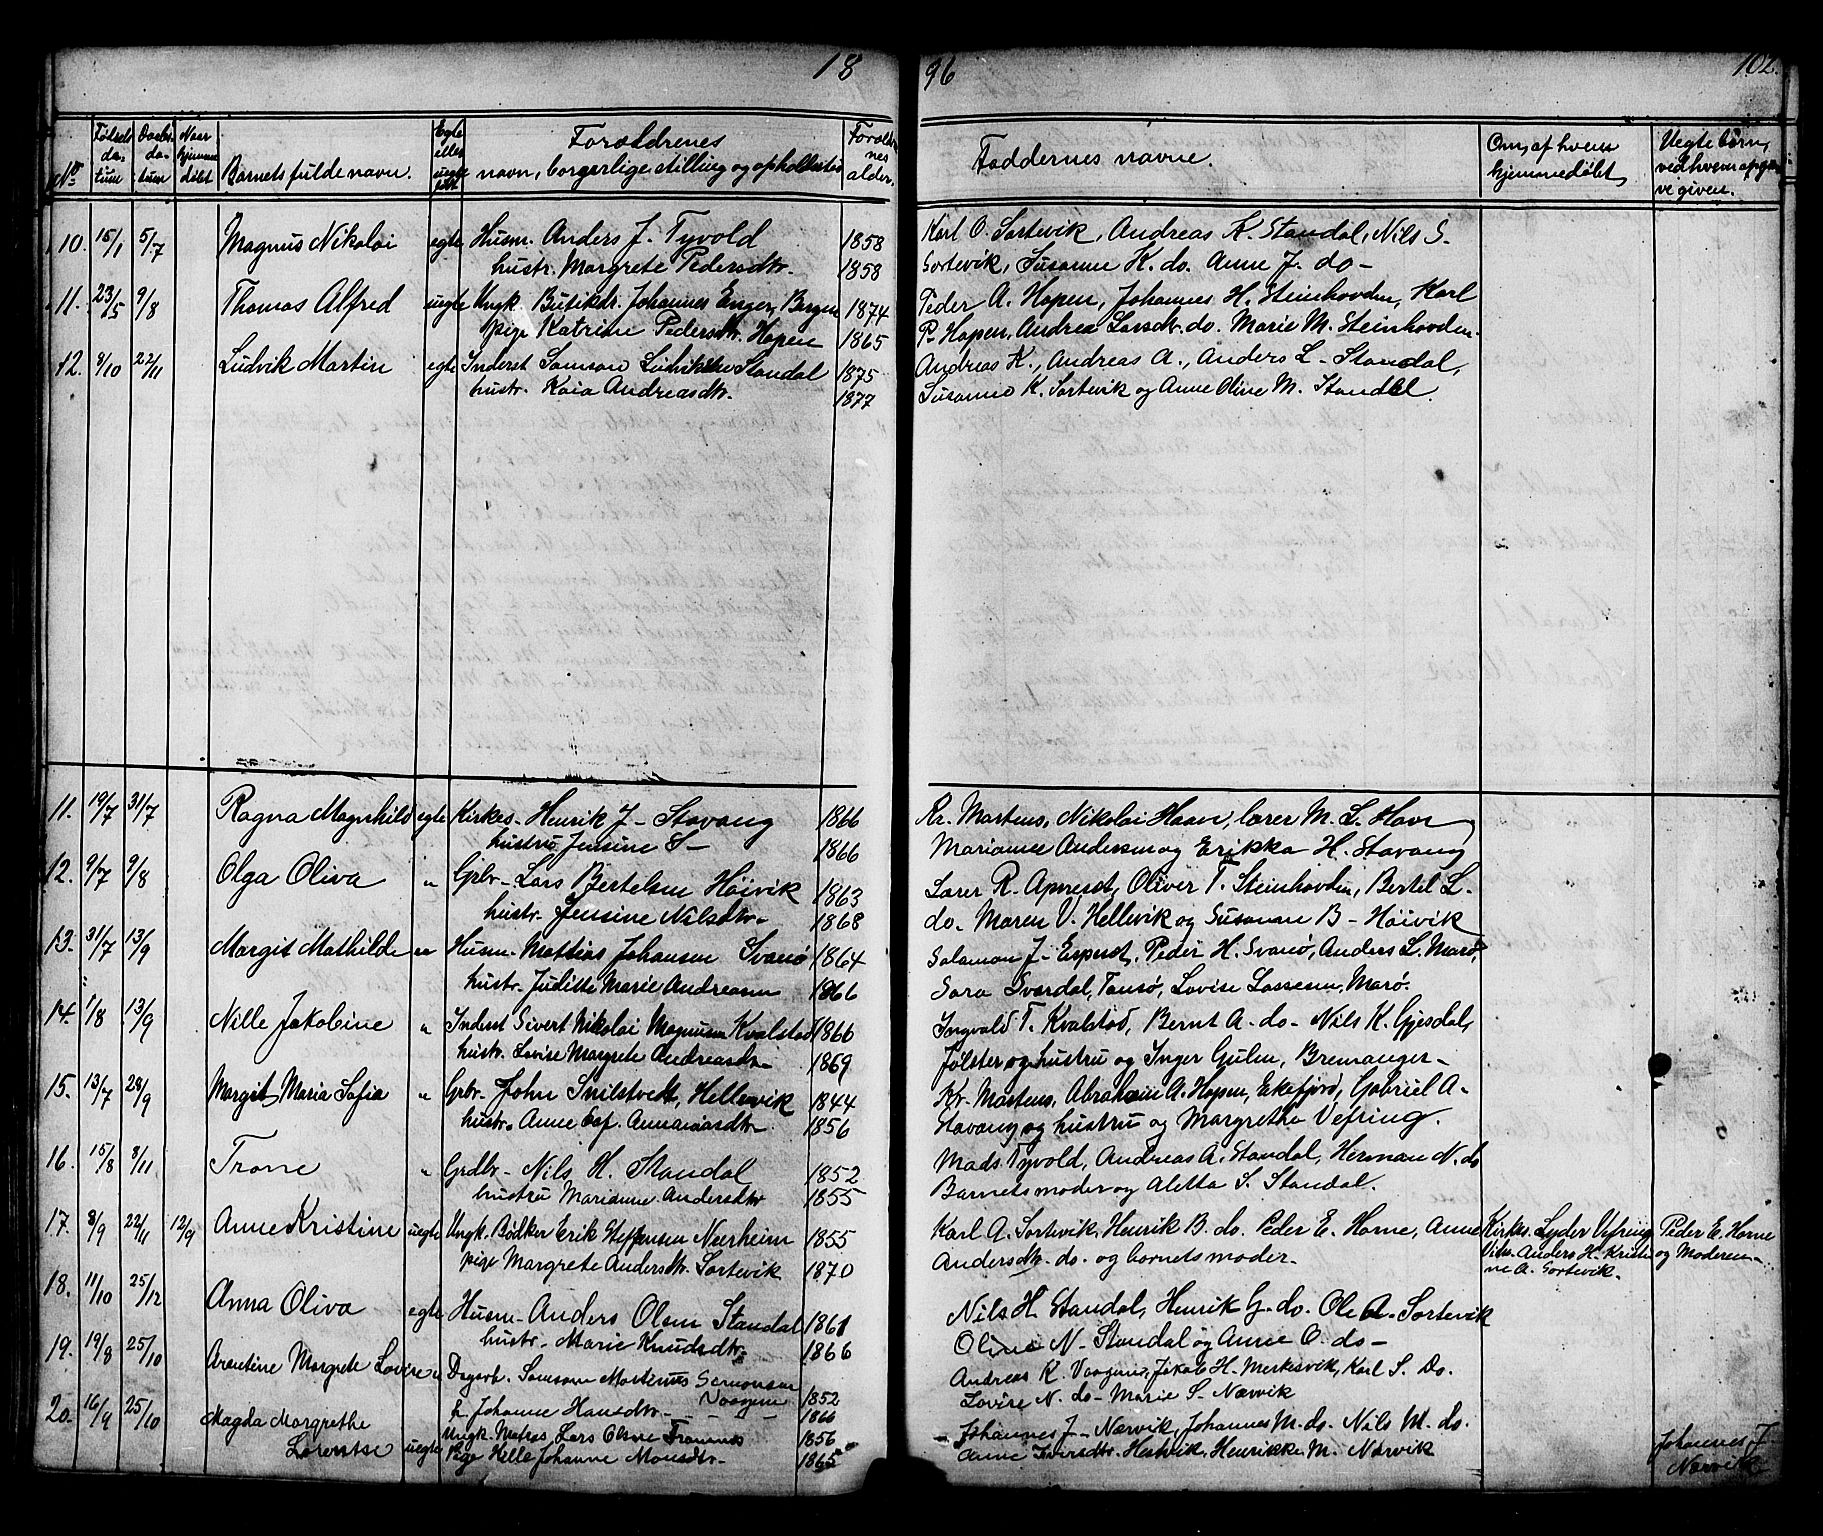 18
96
102.
No
Fødsels da- tum
Daabs- da- tum
Naar hjemme døbt
Barnets fulde navn.
Egte eller uegte født
Forældrenes
navn, borgerlige stilling og opholdssted
Foræld- nes alder.
Faddernes navne.
Om, af hvem
hjemmedøbt
Uegte børn,
ved hvem opgi-
ve given.
10. 15/1 5/7 Magnus Nikolai egte Husm. Anders J. Tyvold 1858
hustr. Margrete Pedersdtr. 1858
Karl O. Sortevik, Andreas K. Standal, Nils S.
Sortevik, Susanne K. do. Anne J. do-
11. 23/5 9/8 Thomas Alfred uegte Ungk. Butikdr. Johannes Enger, Bergen 1874
pige Katrine Pedersdtr. Hopen 1865
Peder A. Hopen, Johannes H. Steinhovden, Karl
P. Hopen, Andrea Larsdtr. do. Marie M. Steinhovden.
12. 8/10 22/11 Ludvik Martin egte Inderst Samson Standal 1875
hustr. Kaia Andreasdtr. 1877
Andreas K., Andreas A., Anders L. Standal,
Susanne K. Sortevik og Anne Oline M. Standal.
11. 19/7 31/7 Ragna Magnhild egte Kirkes. Henrik J. Stavang 1866
hustru Jensine S- 1866
Kr. Martens, Nikolai Haav, lærer M. L. Havr
Marianne Andersen og Erikka H. Stavang
12. 9/7 9/8 Olga Oliva " Grbr- Lars Bertelsen Høivik 1863
hustr. Jensine Nilsdtr. 1868
Lærer R. Oliver T. Steinhovden, Bertil L.
do. Maren V. Hellevik og Susanne B- Høivik
13. 31/7 13/9 Margit Mathilde " Husm- Mattias Johansen Svanø 1864
hustr. Juditte Marie Andreasen 1866
Salamon J- Peder H. Svanø, Anders L. Marø,
Sara Svardal, Tansø, Lovise Lassesen, Marø.
14. 1/8 13/9 Nille Jakobine " Inderst Sivert Nikolai Magnusen Kvalstad 1866
hustr. Lovise Margrete Andreasdtr. 1869
Ingvald T. Kvalstad, Bernt A. do- Nils K. Gjesdal,
Jølster og hustru og Inger Gulen, Bremanger-
15. 13/7 28/9 Margit Maria Sofia " Grbr- John Snilstveit, Hellevik 1844
hustr. Anne 1856
Kr. Martens, Abraham A. Hopen, Eikefjord, Gabriel A.
Stavang og hustru og Margrethe Vefring.
16. 15/8 8/11 Trone " Grdbr- Nils H. Standal 1852
hustru Marianne Andersdtr 1855
Mads Tyvold, Andreas A. Standal, Herman N. do
Barnets moder og Aletta S. Standal.
17. 8/9 22/11 12/9 Anne Kristine uegte Ungk. Bødker Erik Steffensen Neerheim 1855
pige Margrete Andersdtr. Sortevik 1870
Karl A. Sortevik, Henrik B. do. Peder E. Horne, Anne
Andersdtr. do. og barnets moder.
Kirkes. Lyder Vefring
Vidn. Anders H. Kristi-
ne A. Sortevik.
Peder E. Horne
og Moderen
18. 11/10 25/12 Anna Oliva egte Husm- Anders Olsen Standal 1861
hustr. Marie Knudsdtr. 1866
Nils H. Standal, Henrik G. do. Ole A. Sortevik
Oline N. Standal og Anne O. do-
19. 19/8 25/10 Arentine Margrete Lovise " Dagarb. Samson Martinus Semonsen
Vaagene 1852
h. Johanne Hansdtr. 1866
Andreas K. Vaagene, Jakob H. Merkesvik, Karl S. Do.
Lovise N. do- Marie S. Nærvik
20. 16/9 25/10 Magda Margrethe
Lorentse uegte Ungk. Matros Lars Olsen Tromnes 1856
Pige Helle Johanne Monsdtr. 1865
Johannes J- Nærvik, Johannes M. do. Nils M. do.
Anne Iversdtr. Henrikke M. Nærvik
Johannes J.
Nærvik